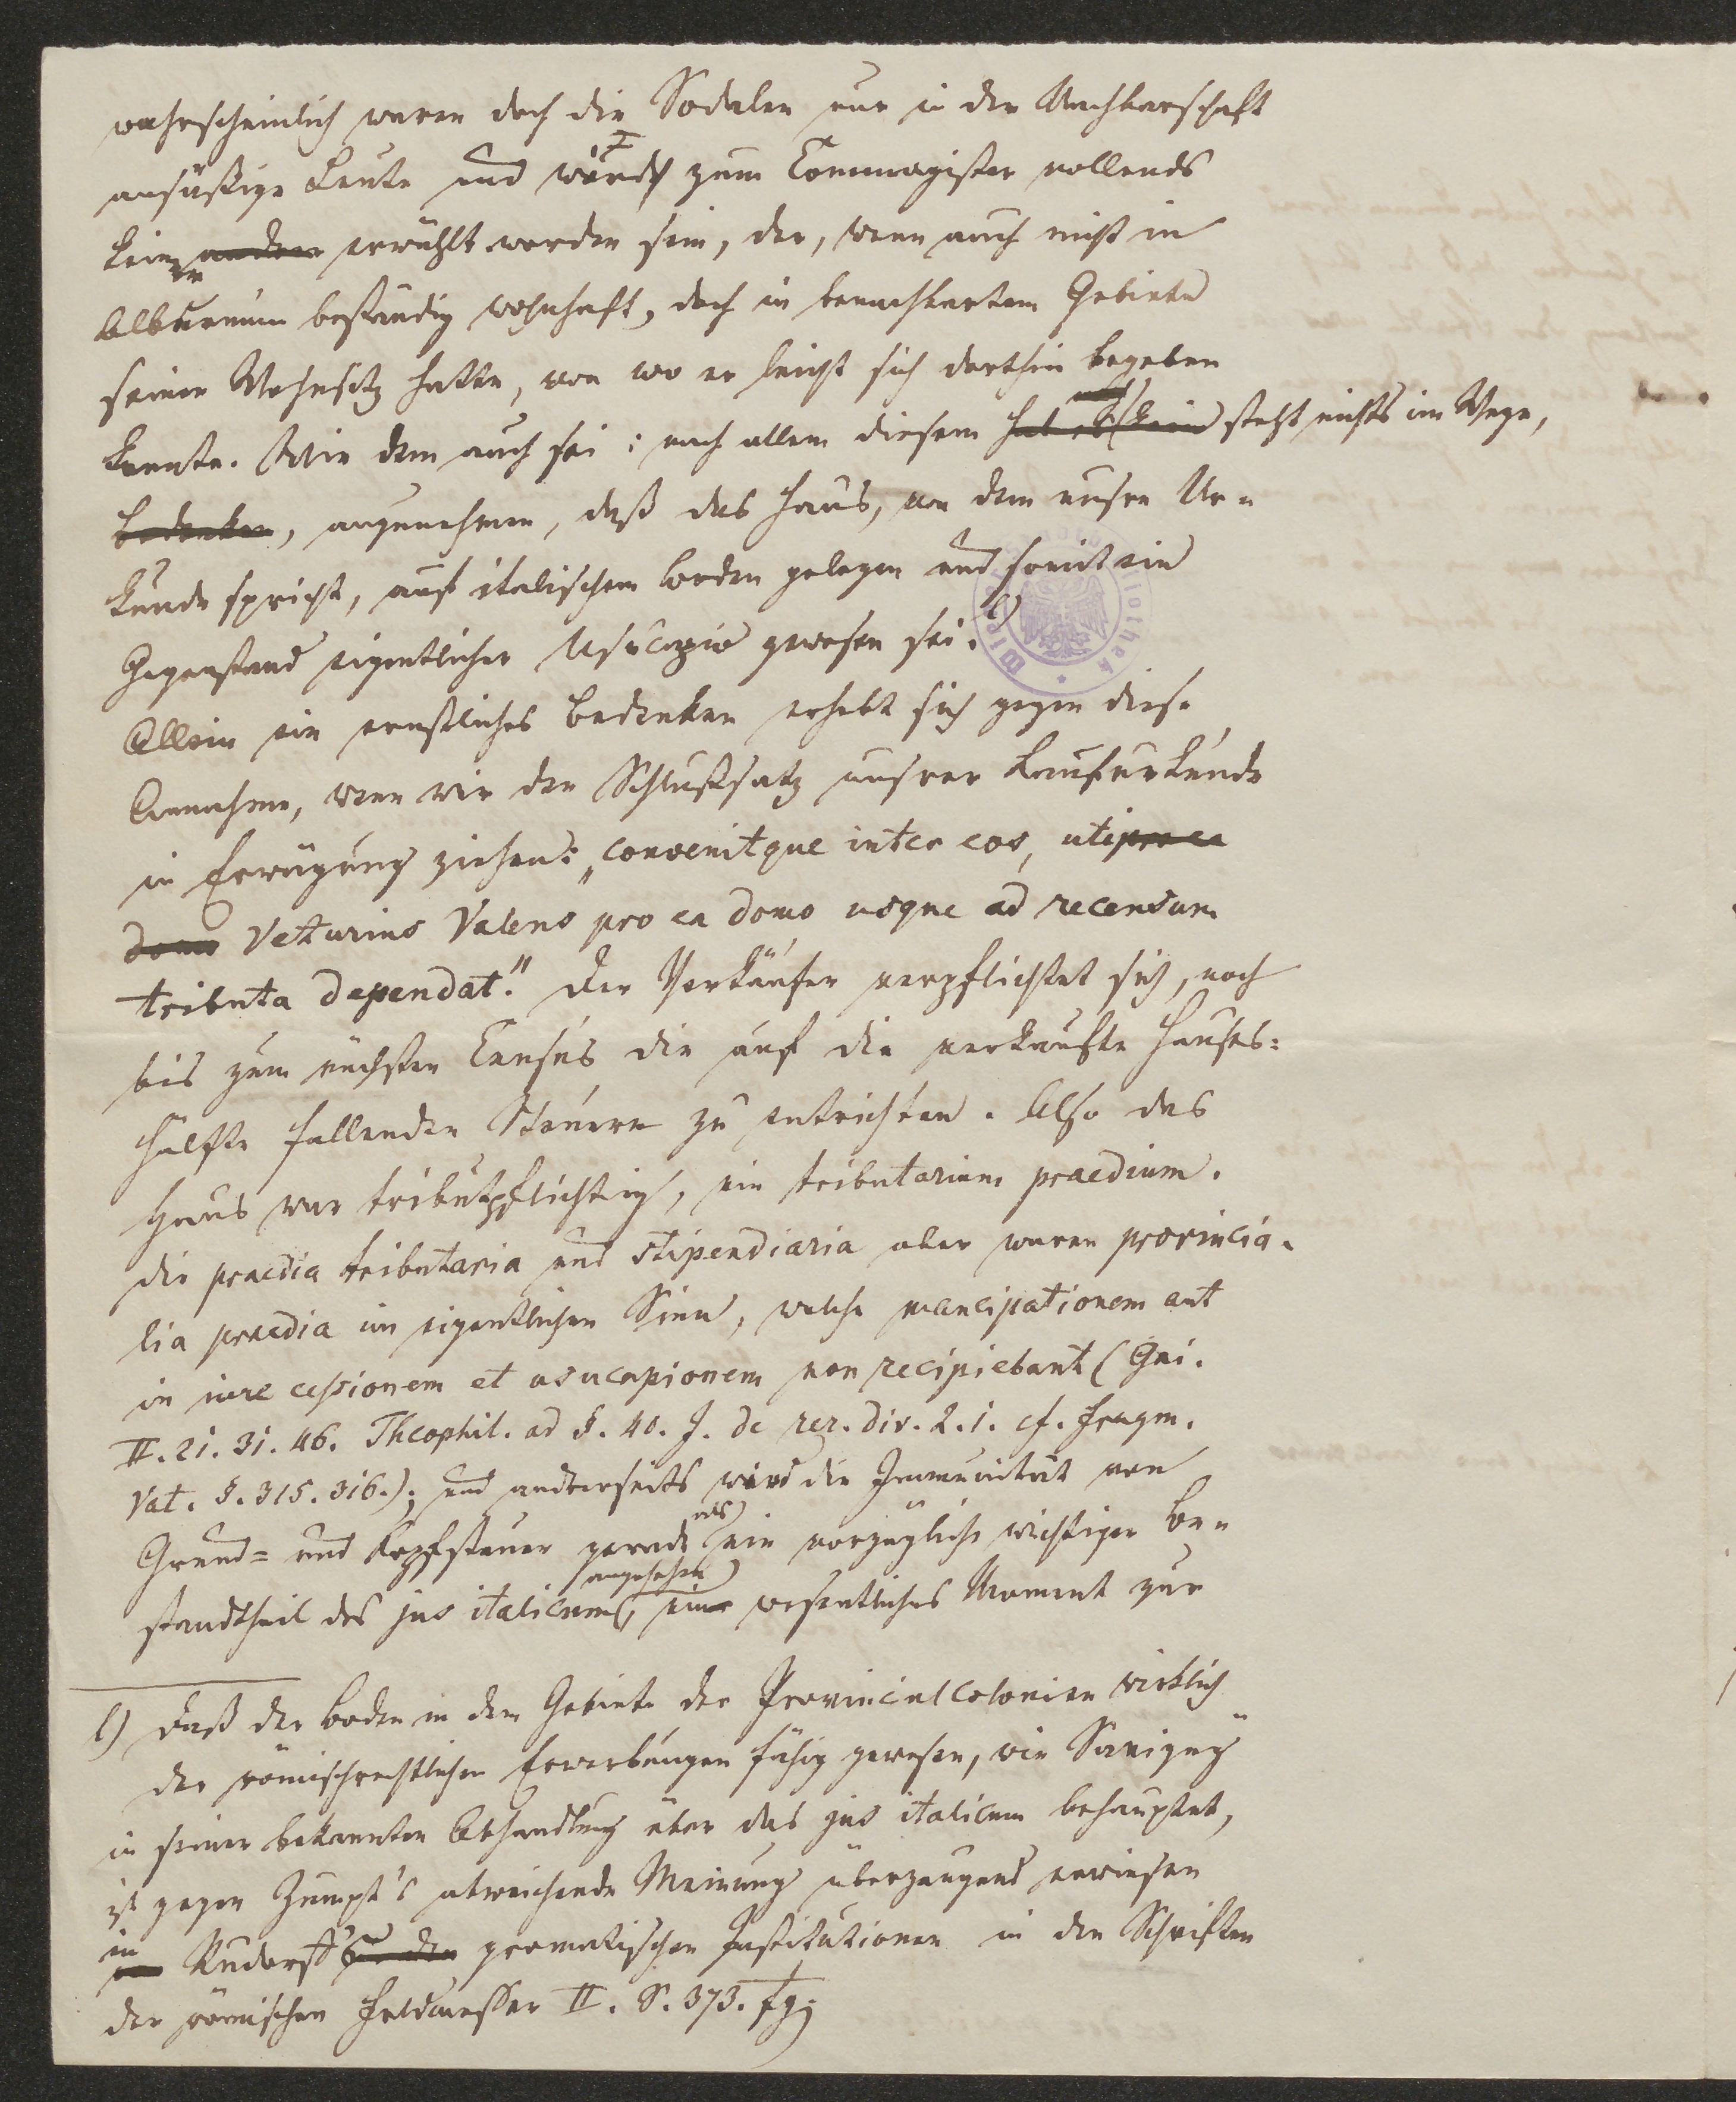 wahrscheinlich waren doch die Sodalen nur in der Nachbarschaft
ansäßige Leute und würde zum Commagister vollends
keiner erwählt worden sein, der, wenn auch nicht in
Alburnum beständig wohnhaft, doch in benachbartem Gebiete
seinen Wohnsitz hatte, von wo er leicht sich dorthin begeben
konnte. Wie dem auch sei: nach allem diesem hat es kein steht nichts im Wege,
Bedenken, anzunehmen, daß das Haus, von dem unsre Ur=
kunde spricht, auf italischem Boden gelegen und somit ein
Gegenstand eigentlicher Usucapio gewesen sei. 1)
Allein ein ernstliches Bedenken erhebt sich gegen diese
Annahme, wenn wir den Schlußsatz unsrer Kaufurkunde
in Erwägung ziehen: „convenitque inter eos, uti pro ea
domo Veturius Valens pro ea domo usque ad recensum
tributa dependat." Der Verkäufer verpflichtet sich, noch
bis zum nächsten Census die auf die verkaufte Hauses=
hälfte fallenden Steuern zu entrichten. Also das
Haus war tributpflichtig, ein tributarium praedium.
Die praedia tributaria und stipendiaria aber waren provincia=
lia praedia im eigentlichen Sinn, welche mancipationem aut
in iure cessionem et usucapionem non recipiebant (Gai.
II. 21. 31. 46. Theophil. ad §. 40. J. de rer. div. 2. 1. cf. Fragm.
Vat. §. 315. 316.); und anderseits wird die Immunität von
Grund= und Kopfsteuer gerade als ein vorzüglich wichtiger Be=
standtheil des jus italicum angesehen, ein wesentliches Moment zur
1) Daß der Boden in dem Gebiete der Provincialcolonien wirklich
der römischrechtlichen Erwerbungen fähig gewesen, wie Savigny
in seiner bekannten Abhandlung über das jus italicum behauptet,
ist gegen Zumpt's abweichende Meinung überzeugend erwiesen
in Rudorff's gromatischen Institutionen in den Schriften
der römischen Feldmesser II. S. 373. fg.